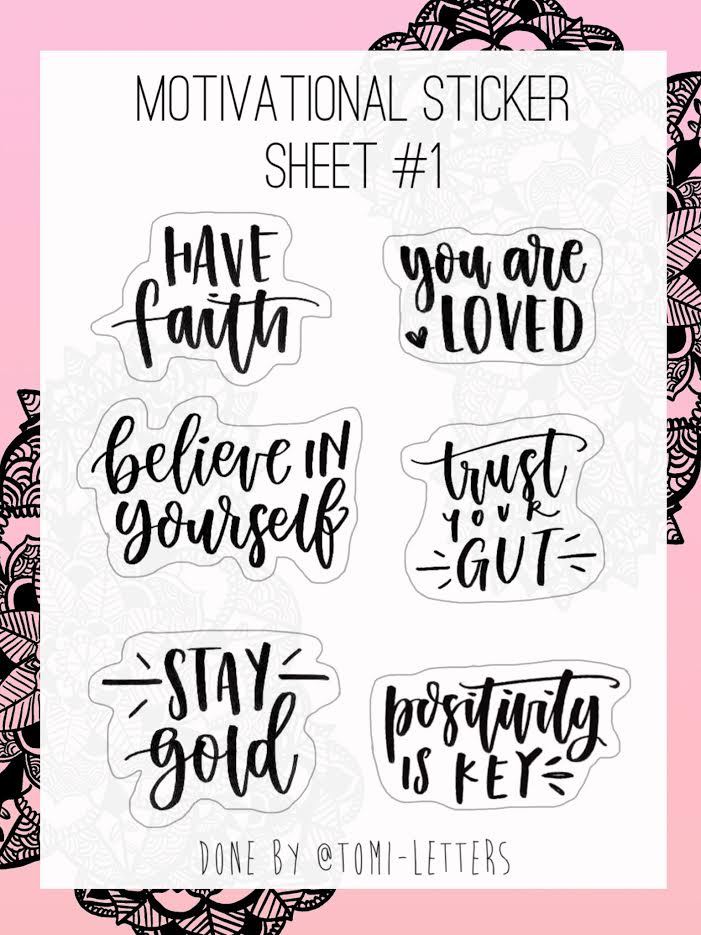 MOTIVATIONAL STICKER
SHEET #1
HAVE
faith
you are
LOVED
believe IN
yourself
trust
YOUR
GUT
STAY
gold
positivity
IS KEY
DONE BY @TOMI-LETTERS